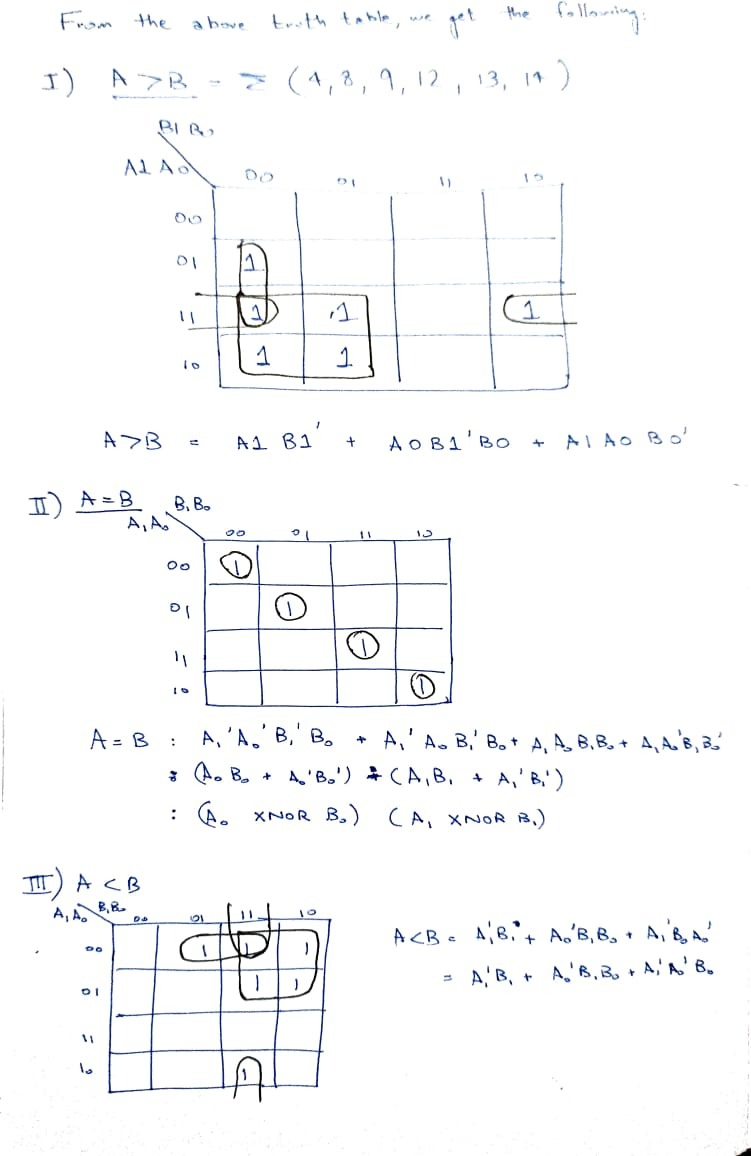 From the above truth table, we get the following:
I) A > B = Σ (4, 8, 9, 12, 13, 14)
B1 B0
A1 A0 00 01 11 10
00
01 1
11 1 1 1
10 1 1
A>B = A1 B1' + A0B1'B0 + A1 A0 B0'
II) A = B B1 B0
A1 A0
00 01 11 10
00 1
01 1
11 1
10 1
A = B : A1'A0'B1'B0 + A1'A0B1'B0 + A1A0B1B0 + A1A0'B1B0'
: (A0B0 + A0'B0') (A1B1 + A1'B1')
: (A0 XNOR B0) (A1 XNOR B1)
III) A < B
A1A0 B1B0 00 01 11 10
00 1 1 1
01 1 1
11
10 1
A<B = A1'B1 + A0'B1B0 + A1'B0A0'
= A1'B1 + A0'B1B0 + A1'A0'B0